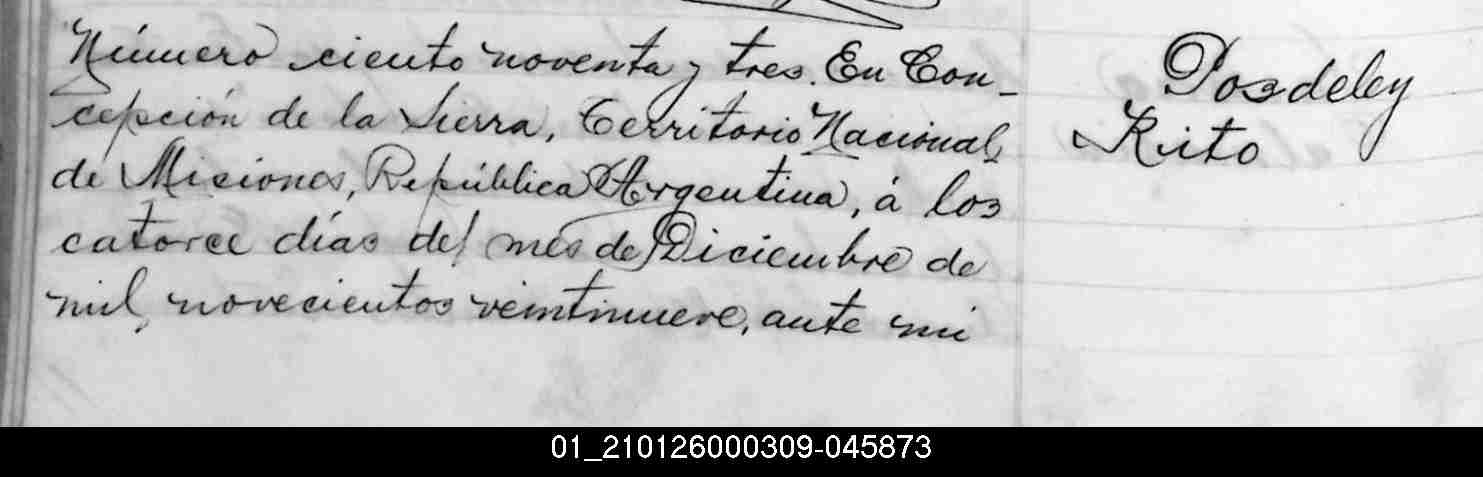 Número ciento noventa y tres. En Con-
cepción de la Sierra, Territorio Nacional
de Misiones, República Argentina, á los
catorce días del mes de Diciembre de
mil novecientos veintinueve, ante mi
Posdeley
Rito
01_210126000309-045873